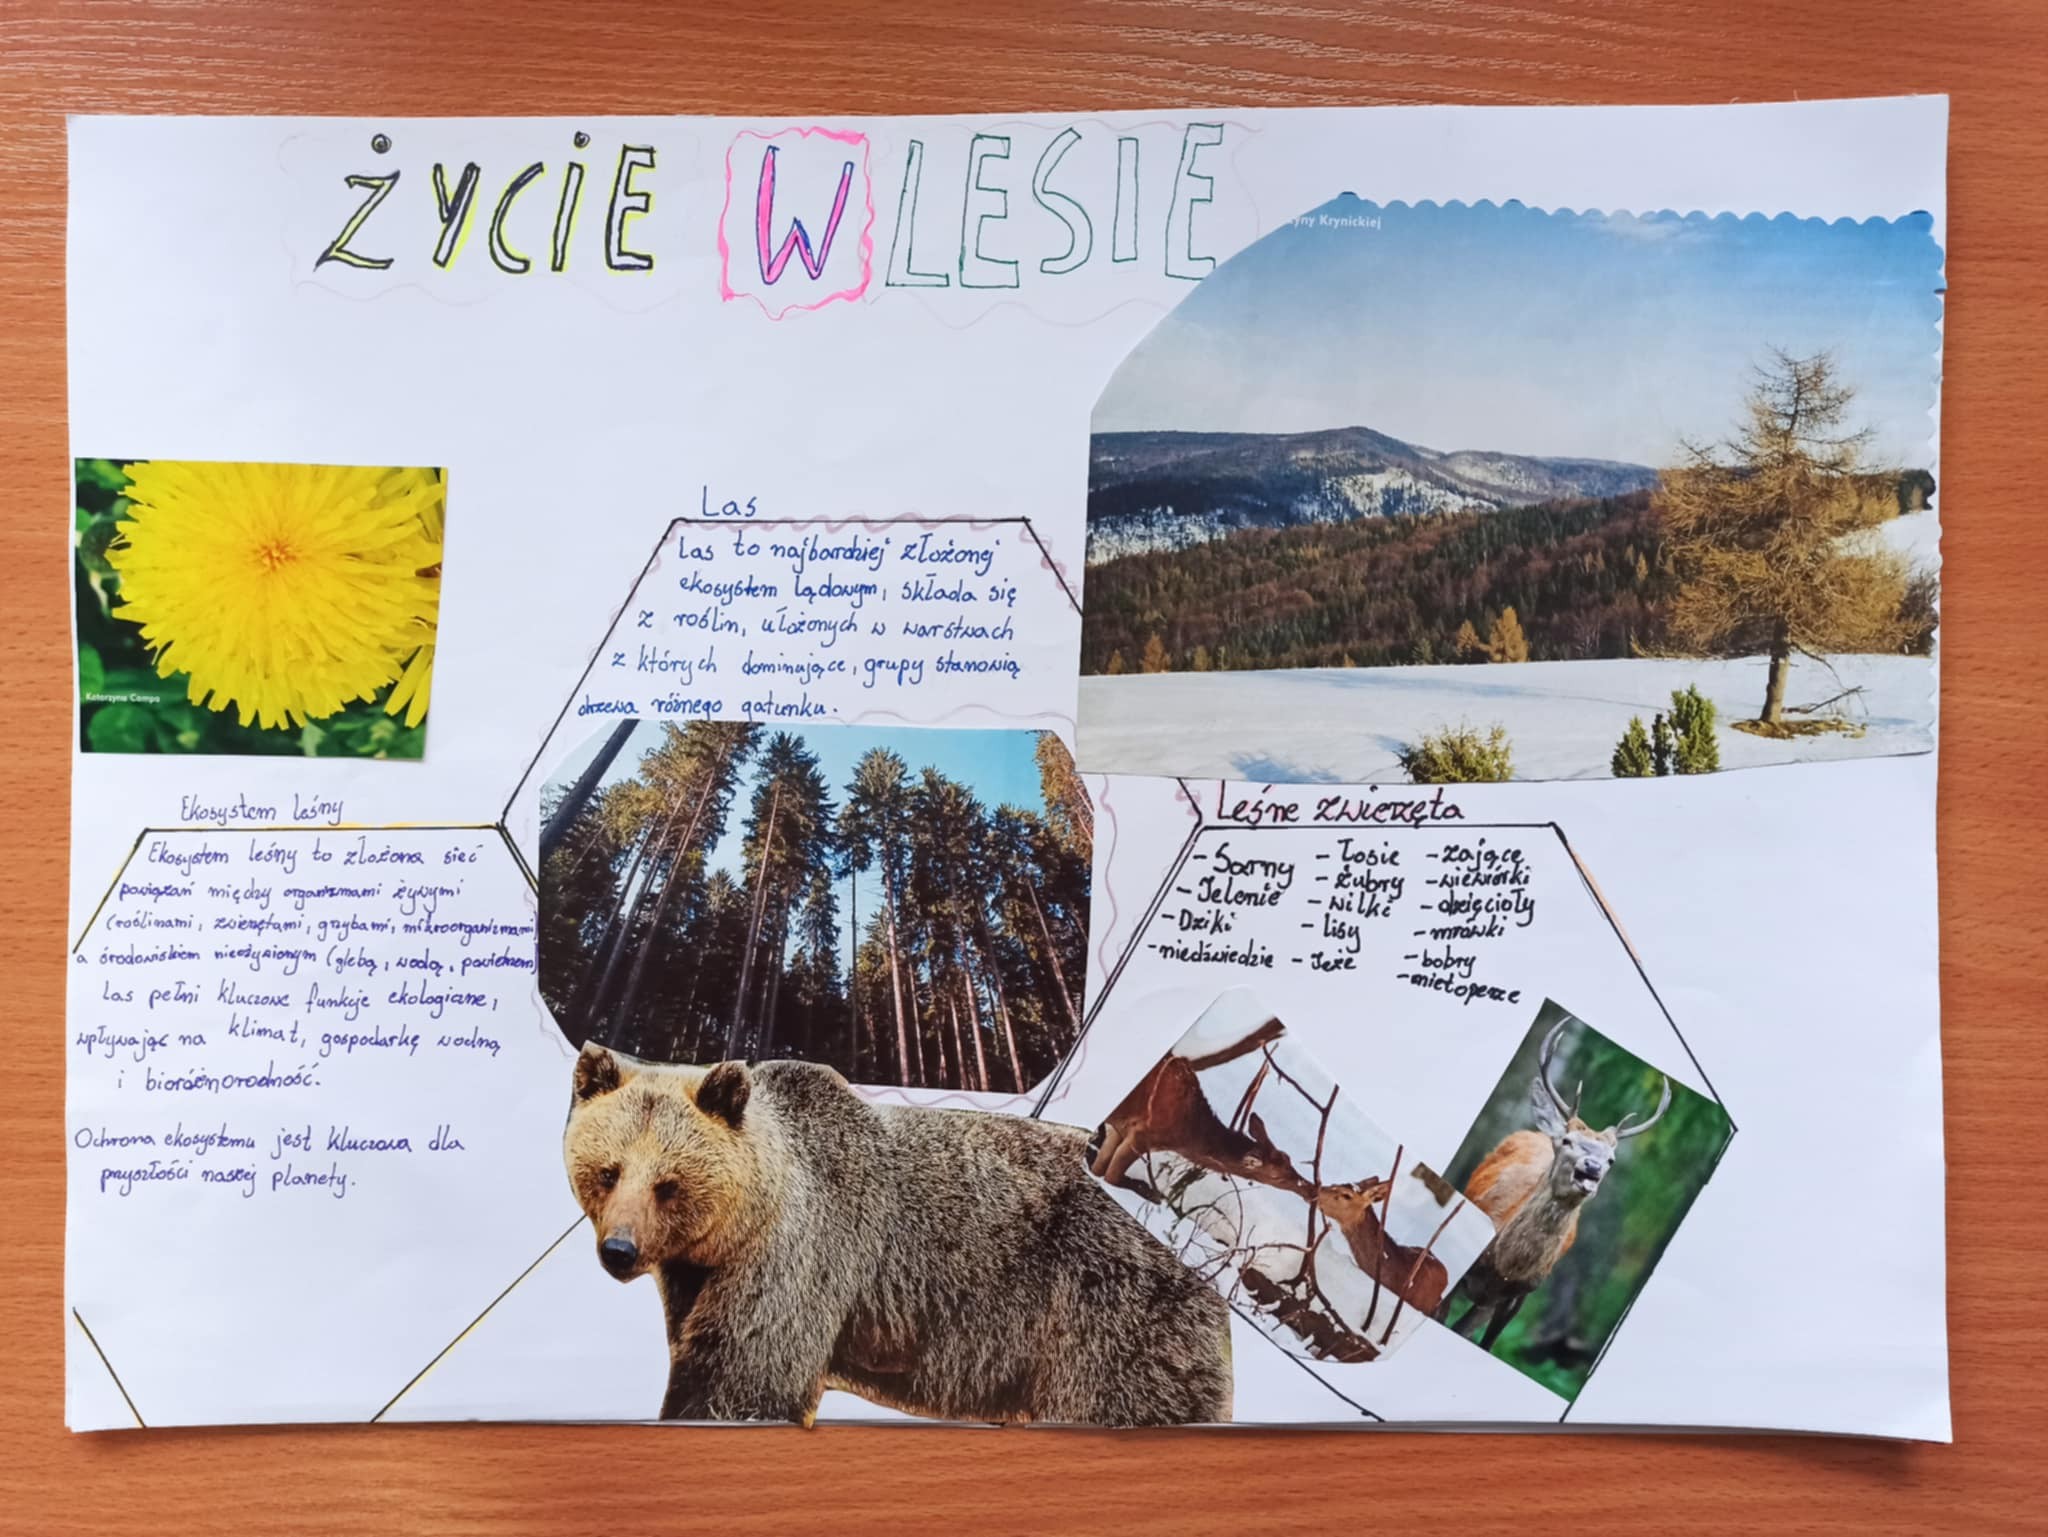 ŻYCIE W LESIE
yny Krynickiej
Katarzyna Campa
Las
Las to najbardziej złożonej
ekosystem lądowym, składa się
z roślin, ułożonych w warstwach
z których dominujące, grupy stanowią
drzewa różnego gatunku.
Ekosystem leśny
Ekosystem leśny to złożona sieć
powiązań między organizmami żywymi
(roślinami, zwierzętami, grzybami, mikroorganizmami)
a środowiskiem nieożywionym (glebą, wodą, powietrzem)
Las pełni kluczowe funkcje ekologiczne,
wpływając na klimat, gospodarkę wodną
i bioróżnorodność.
Ochrona ekosystemu jest kluczowa dla
przyszłości naszej planety.
Leśne zwierzęta
- Sarny
- Jelenie
- Dziki
- niedźwiedzie
- Łosie
- Żubry
- wilki
- lisy
- Jeże
- zające
- wiewiórki
- dzięcioły
- mrówki
- bobry
- nietoperze